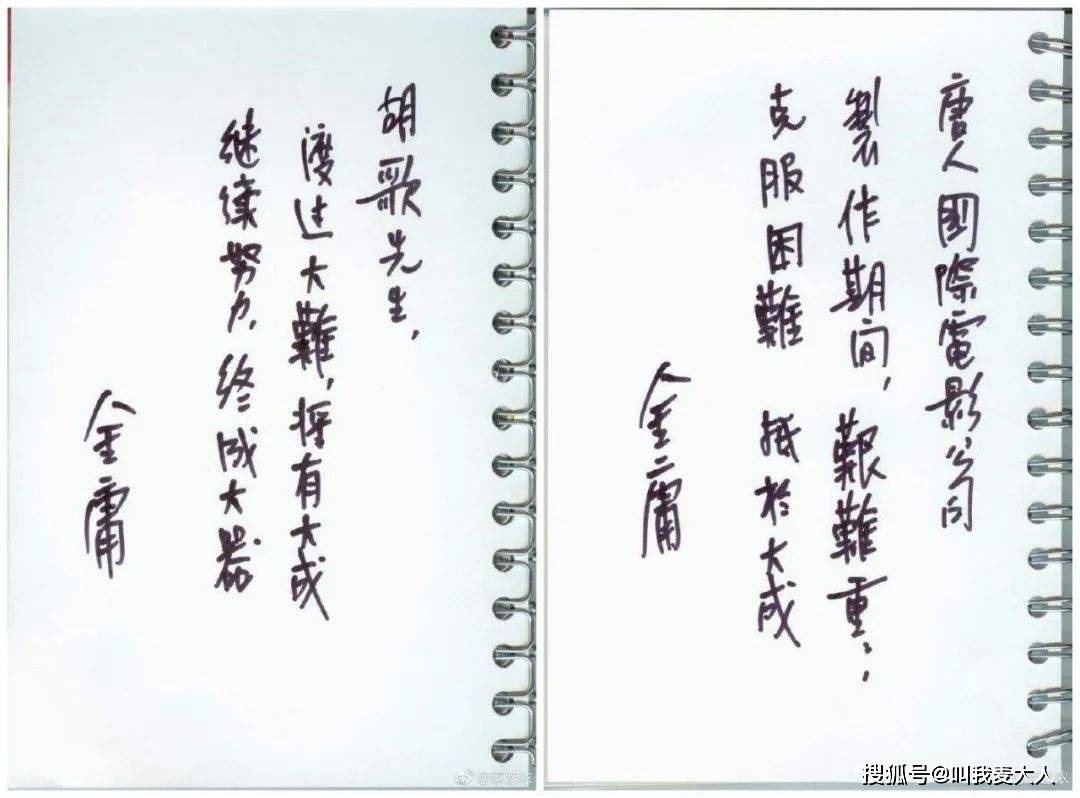 胡歌先生，
渡过大難，将有大成
继续努力，终成大器
金庸
唐人國際電影公司
製作期间，艱難重重，
克服困難 抵於大成
金庸
搜狐号@叫我麦大人